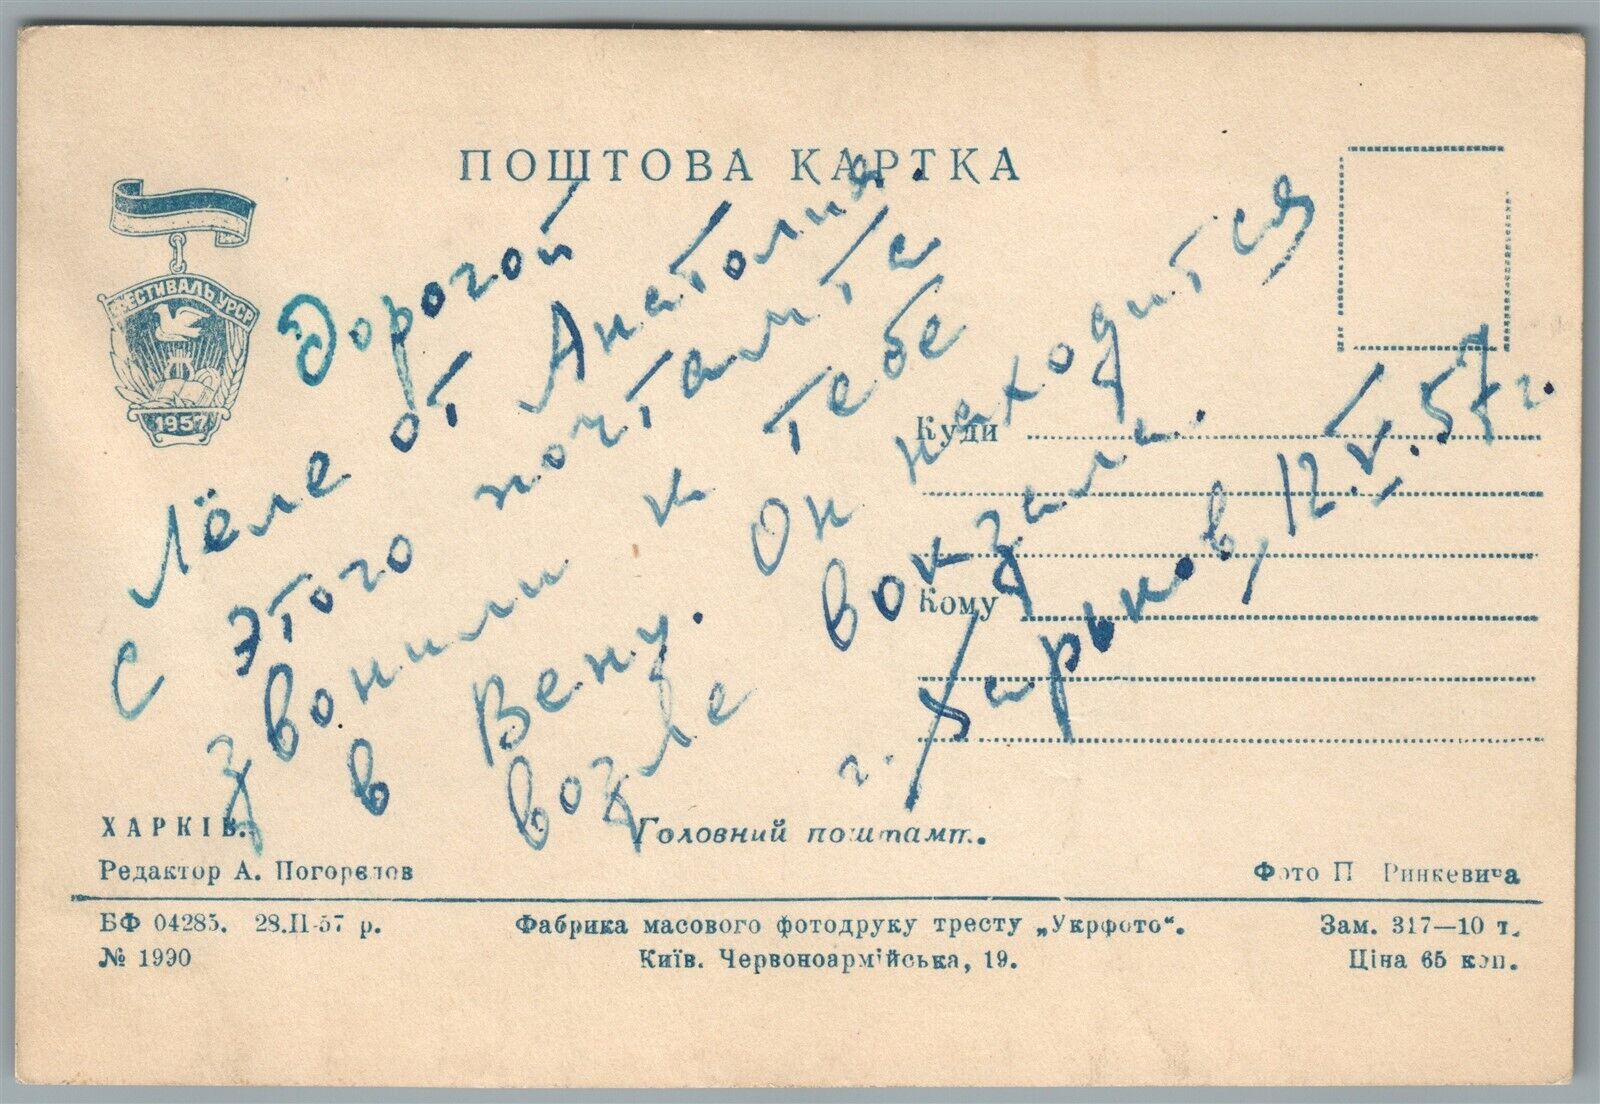 ПОШТОВА КАРТКА
ФЕСТИВАЛЬ УРСР
1957
Дорогой
Лёле от Анатолия.
С этого почтамта
звонили к тебе
в Вену. Он находится
возле вокзала.
г. Харьков, 12.V.57 г.
Куди
Кому
ХАРКІВ.
Головний поштамт.
Редактор А. Погорєлов
Фото П Ринкевича
БФ 04285. 28.II-57 р.
Фабрика масового фотодруку тресту „Укрфото“.
Зам. 317—10 т.
№ 1990
Київ. Червоноармійська, 19.
Ціна 65 коп.